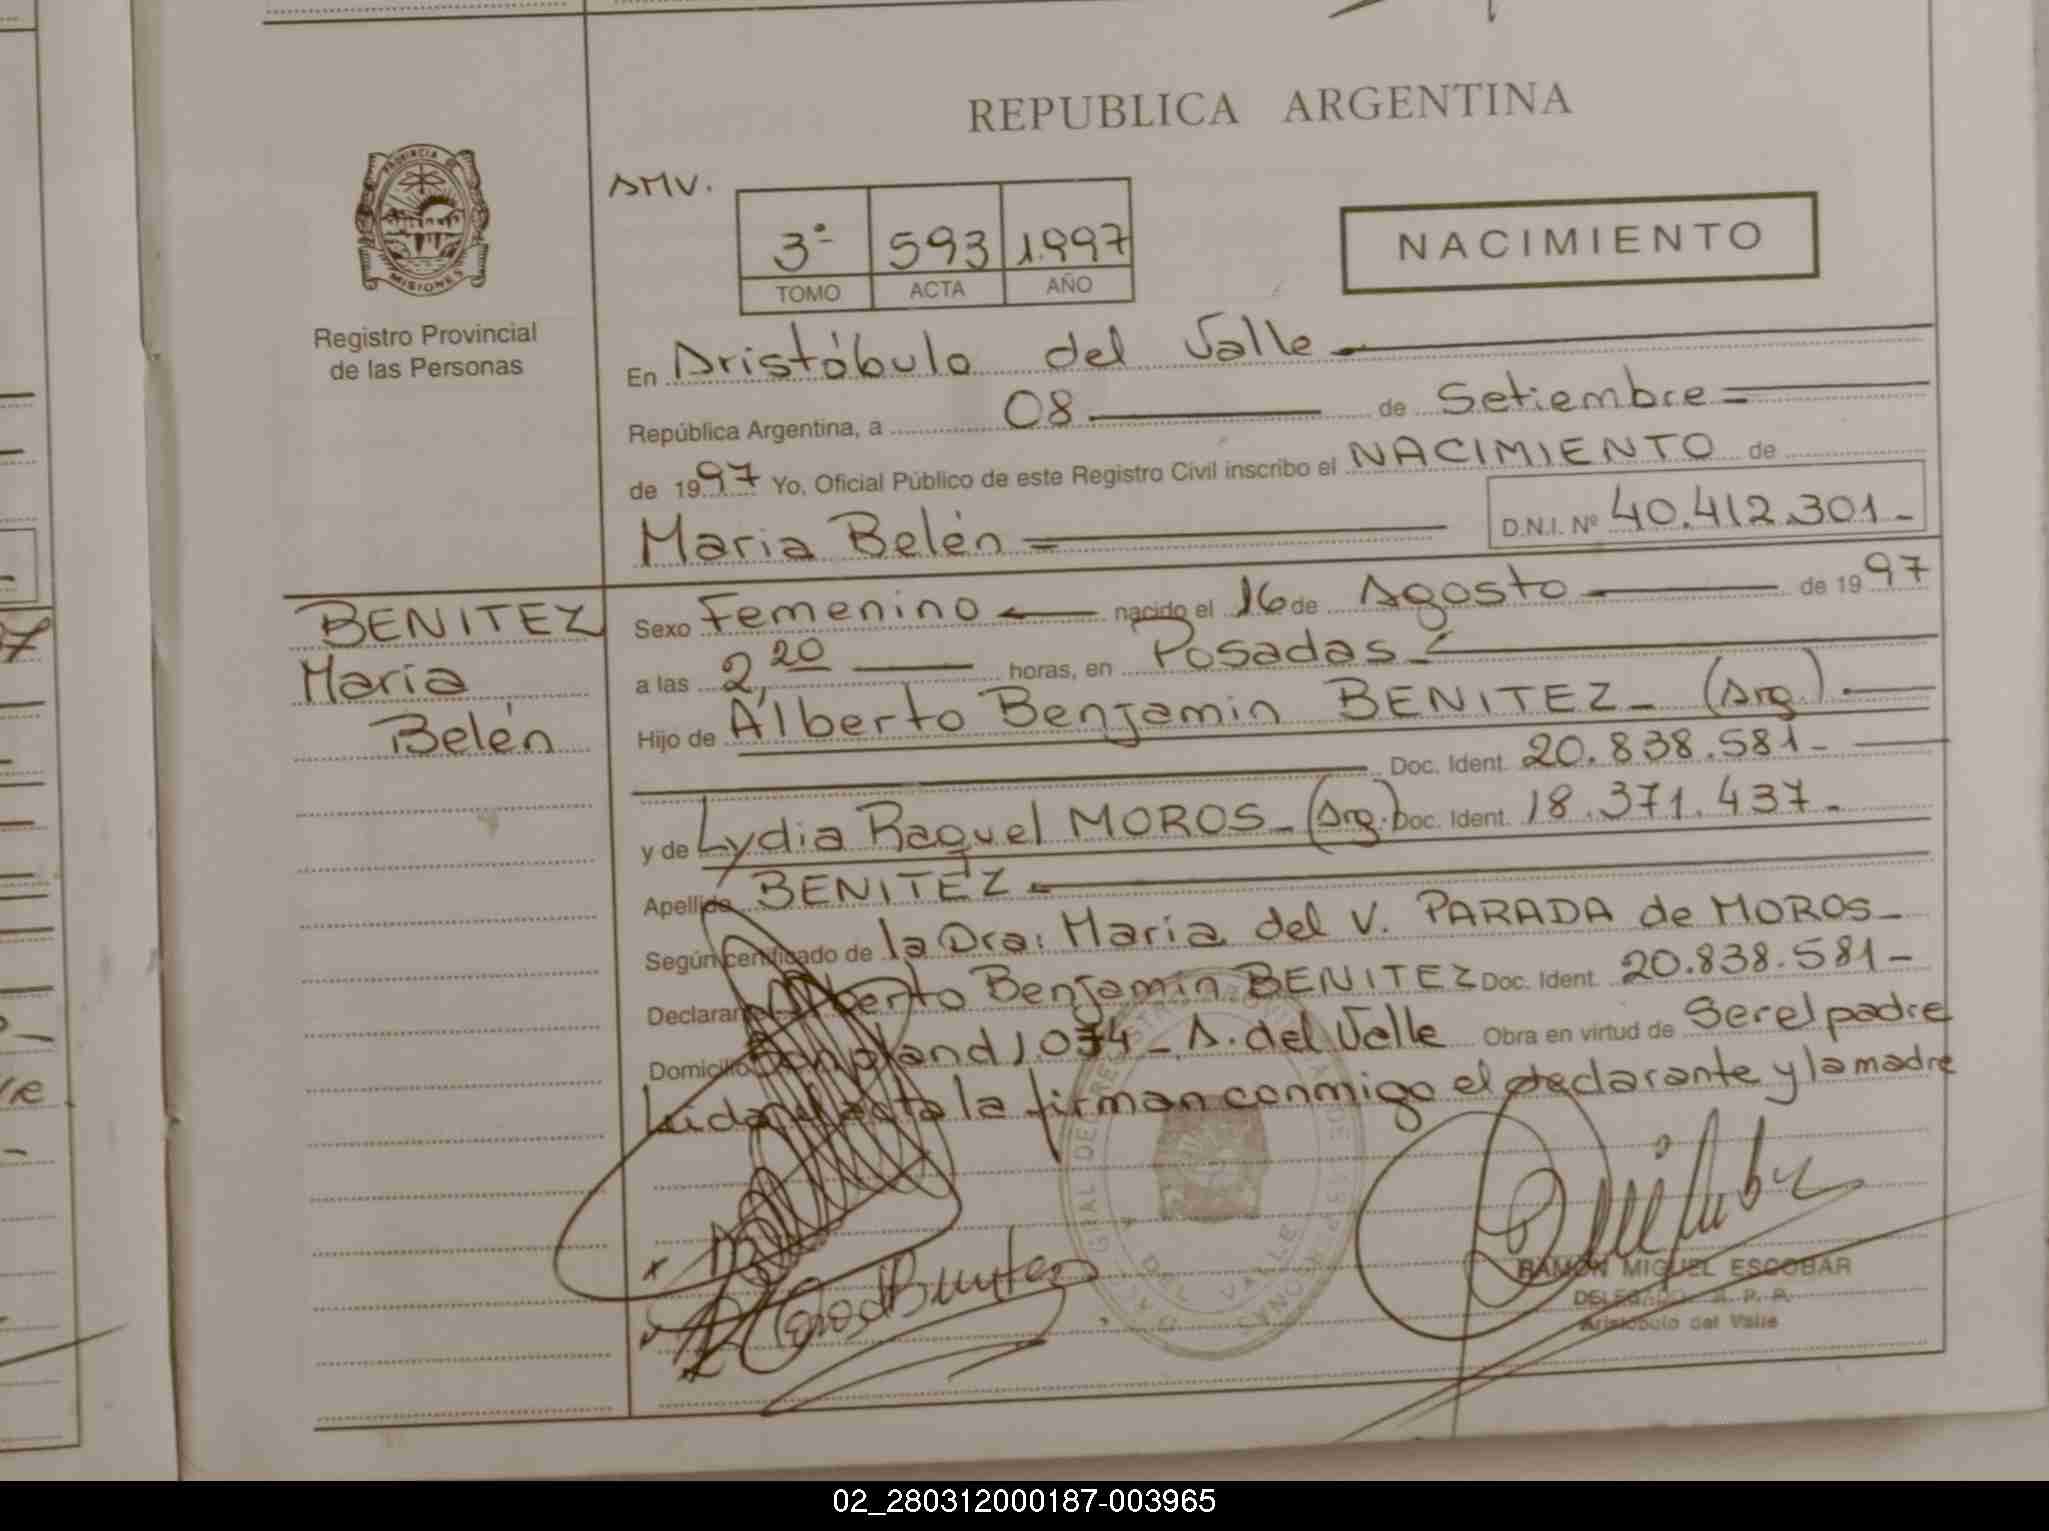 REPUBLICA ARGENTINA
PROVINCIA DE
MISIONES
Registro Provincial
de las Personas
AMV.
3º 593 1.997
TOMO ACTA AÑO
NACIMIENTO
En Aristóbulo del Valle
República Argentina, a 08 de Setiembre
de 1997 Yo, Oficial Público de este Registro Civil inscribo el NACIMIENTO de
Maria Belén D.N.I. Nº 40.412.301-
BENITEZ
Maria
Belén
Sexo Femenino nacido el 16 de Agosto de 1997
a las 2,20 horas, en Posadas
Hijo de Alberto Benjamin BENITEZ- (Arg.)
Doc. Ident. 20.838.581-
y de Lydia Raquel MOROS- (Arg.) Doc. Ident. 18.371.437-
Apellido BENITEZ
Según certificado de la Dra: Maria del V. PARADA de MOROS-
Declarante Alberto Benjamin BENITEZ Doc. Ident. 20.838.581-
Domicilio Bonpland 1.074- A. del Valle Obra en virtud de Ser el padre
Leida el acta la firman conmigo el declarante y la madre
RAMON MIGUEL ESCOBAR
DELEGADO R. P. P.
Aristóbulo del Valle
02_280312000187-003965